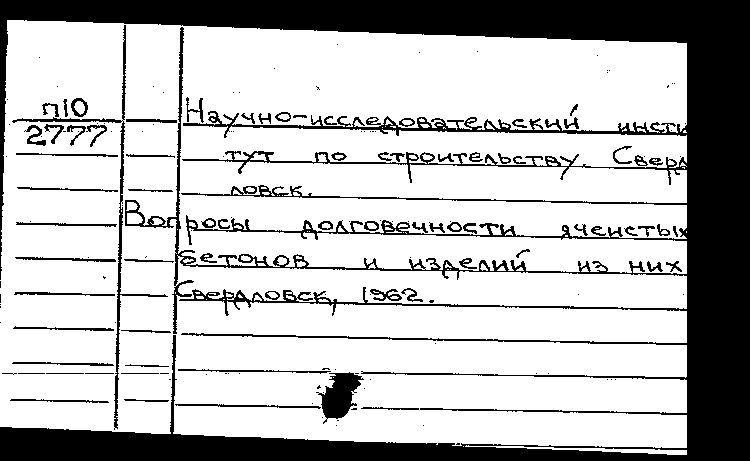 п10
2777
Научно-исследовательский инсти
тут по строительству. Сверд
ловск.
Вопросы долговечности ячеистых
бетонов и изделий из них
Свердловск, 1962.